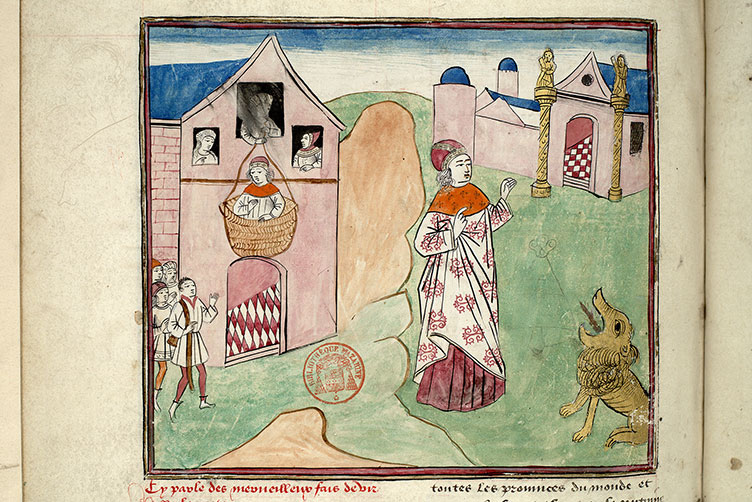 BIBLIOTHÈQUE MAZARINE
Cy parle des merueilleux fais de vir
toutes les prouinces du monde et